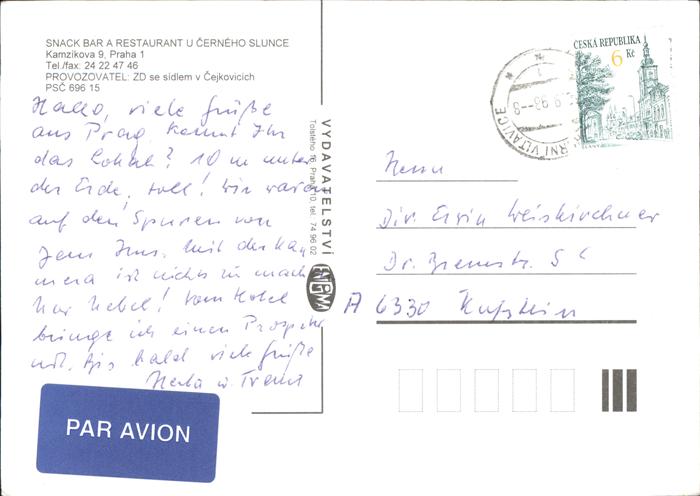 SNACK BAR A RESTAURANT U ČERNÉHO SLUNCE
Kamzíkova 9, Praha 1
Tel./fax: 24 22 47 46
PROVOZOVATEL: ZD se sídlem v Čejkovicích
PSČ 696 15
Hallo, viele Grüße
aus Prag kennt Ihr
das Lokal? 10 m unter
der Erde, toll! Wir waren
auf den Spuren von
Mit der Ka
mera ist nichts zu mach
nur Nebel! Vom Hotel
bringe ich einen Prospekt
mit. Bis bald viele Grüße
Herta u. Franz
PAR AVION
VYDAVATELSTVÍ
Tolstého 16, Praha 10, tel. 74 96 02
ENIGMA
ČESKÁ REPUBLIKA
6 Kč
VLTAVICE
Herrn
Dir. Erwin Weiskirchner
Dr. Premstr. 5
A 6330 Kufstein